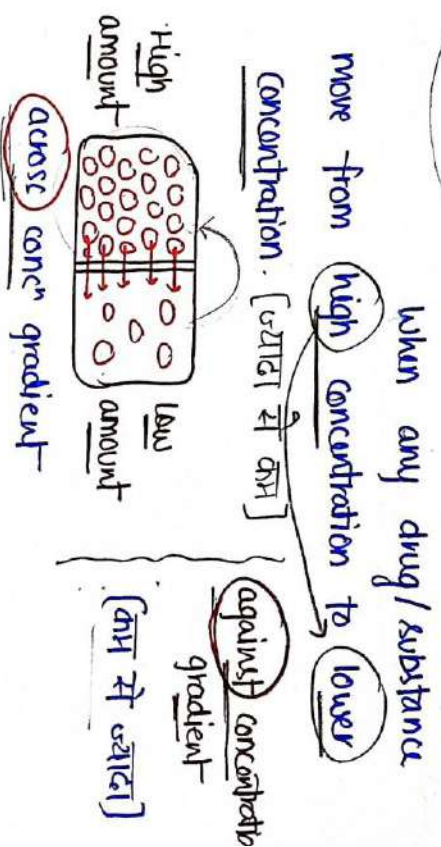 When any drug/substance
move from high concentration to lower
concentration. [ज्यादा से कम]
High
amount
low
amount
across concⁿ gradient
against concentratio
gradient
[कम से ज्यादा]